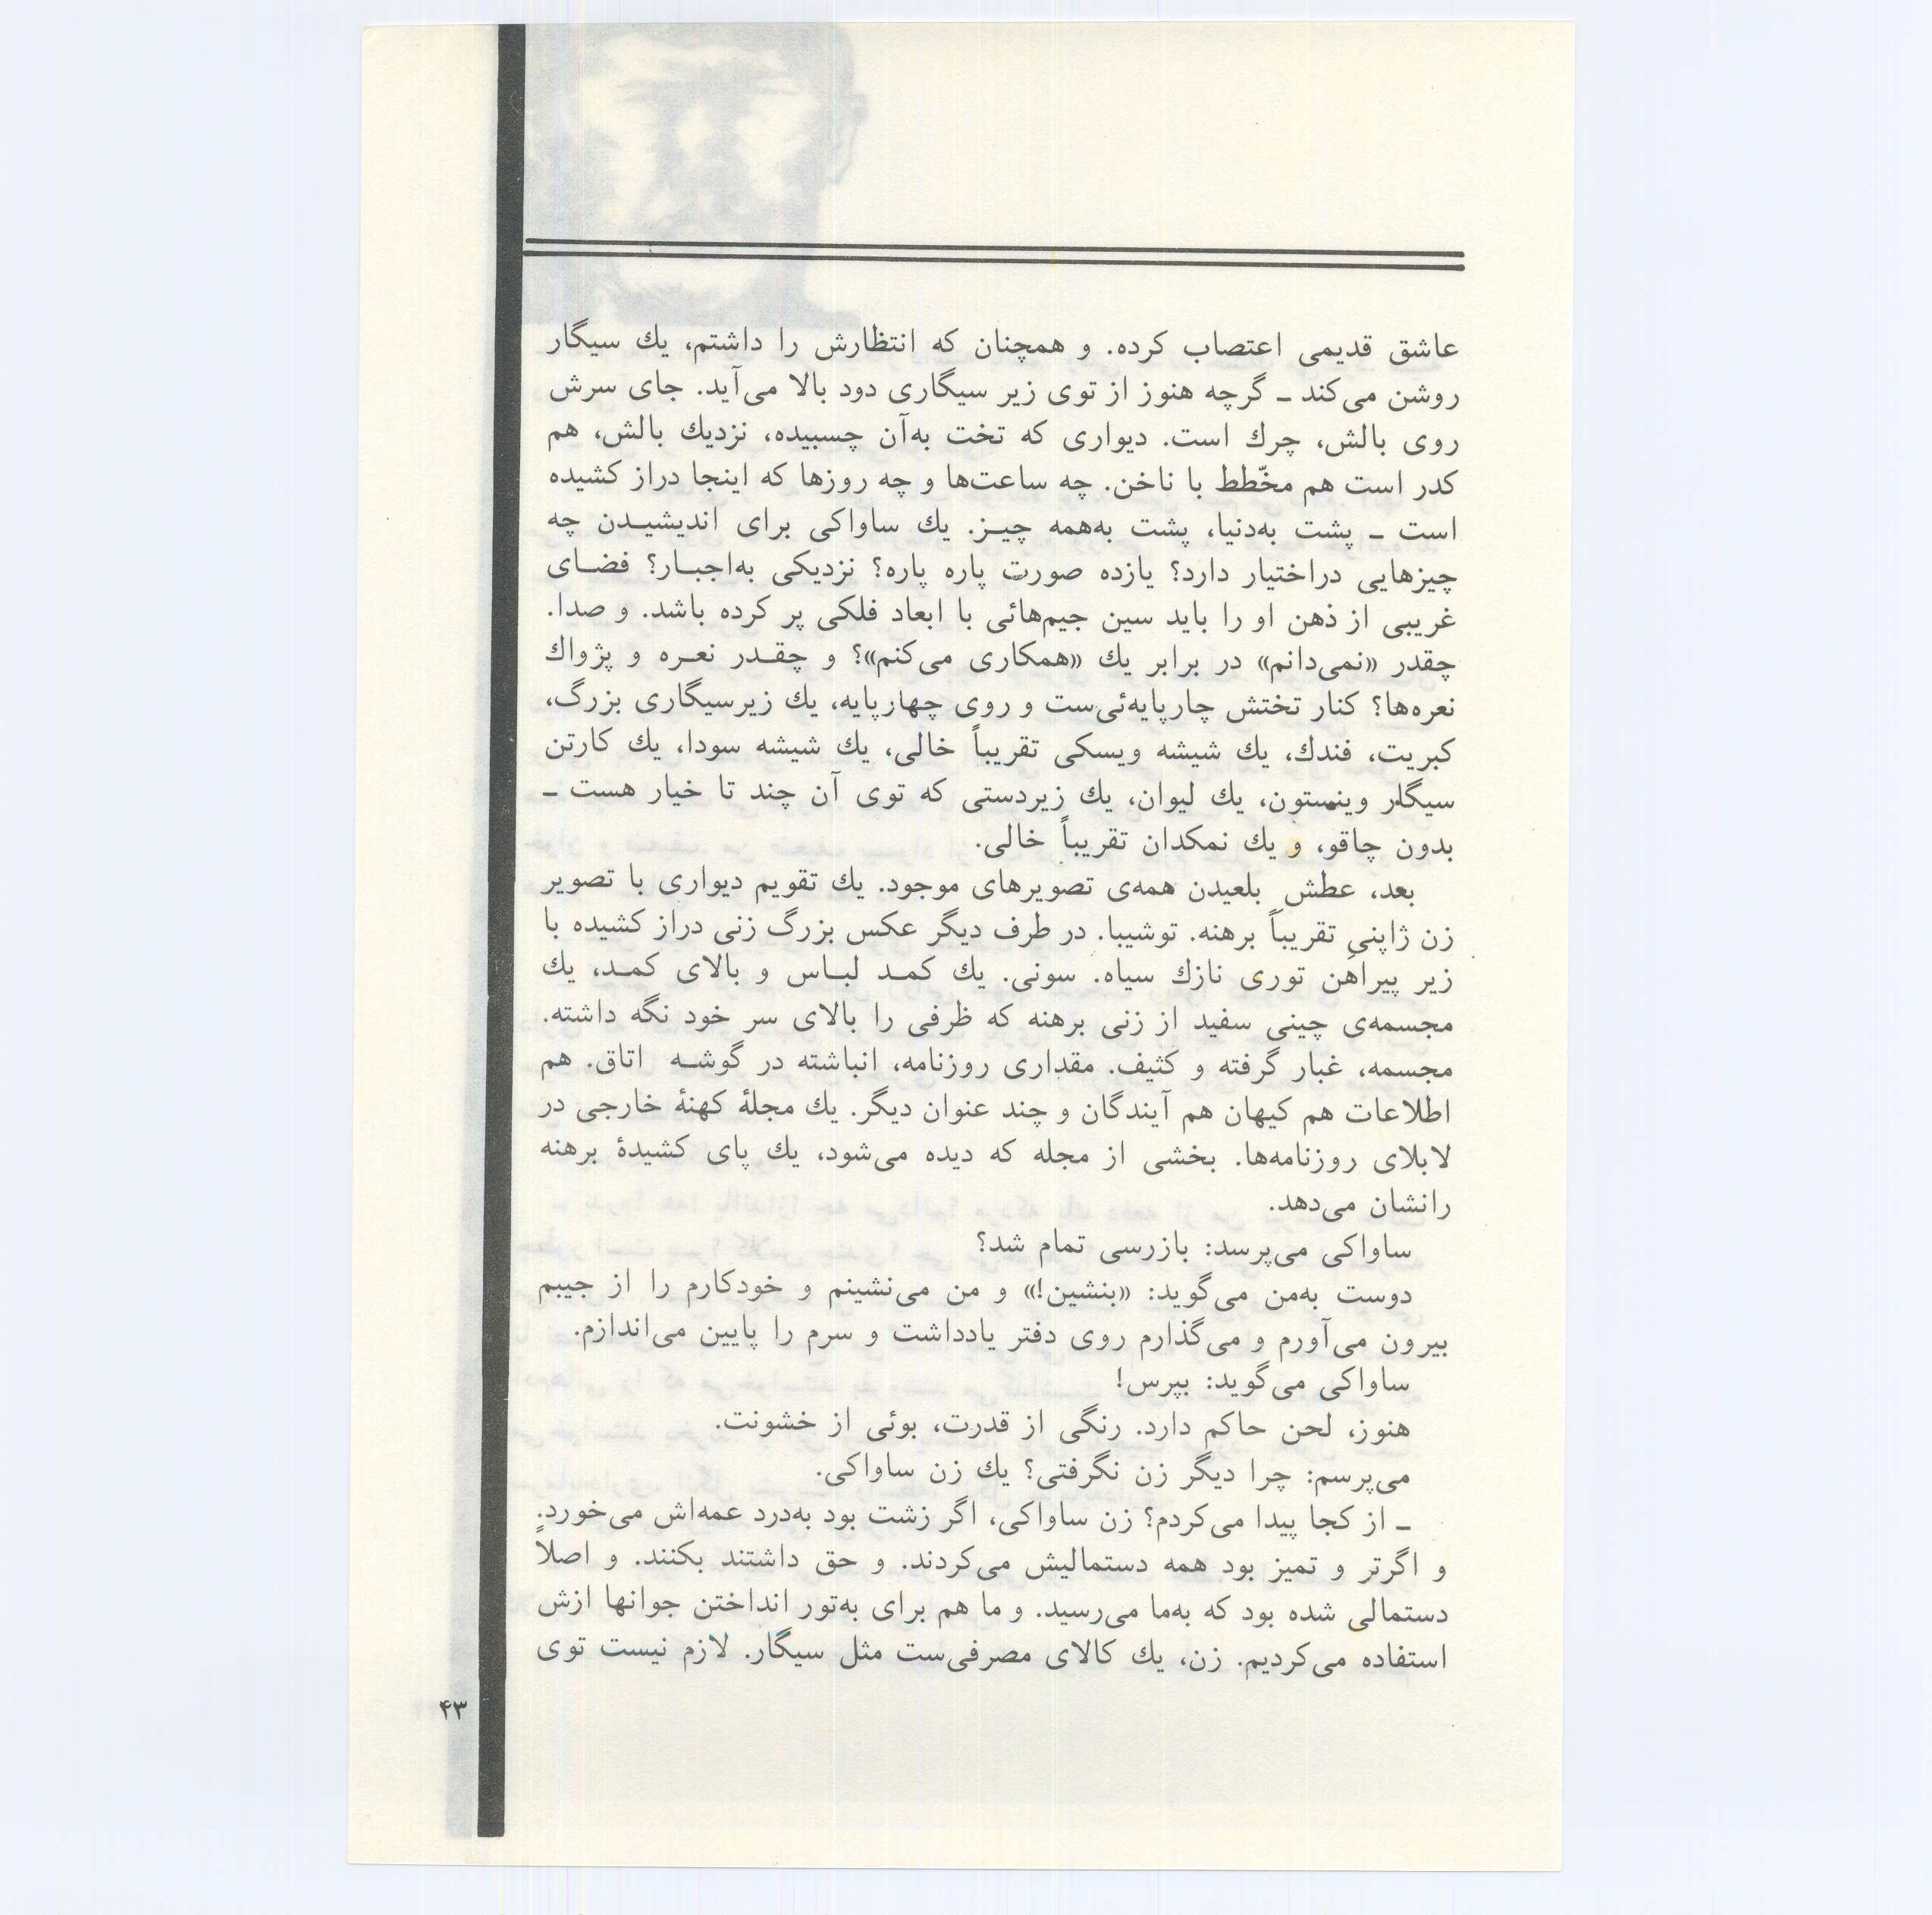 عاشق قدیمی اعتصاب کرده. و همچنان که انتظارش را داشتم، یك سیگار
روشن می‌کند ــ گرچه هنوز از توی زیر سیگاری دود بالا می‌آید. جای سرش
روی بالش، چرك است. دیواری که تخت به‌آن چسبیده، نزدیك بالش، هم
کدر است هم مخّطط با ناخن. چه ساعت‌ها و چه روزها که اینجا دراز کشیده
است ــ پشت به‌دنیا، پشت به‌همه چیـز. یك ساواکی برای اندیشیـدن چه
چیزهایی دراختیار دارد؟ یازده صورت پاره پاره؟ نزدیکی به‌اجبـار؟ فضـای
غریبی از ذهن او را باید سین جیم‌هائی با ابعاد فلکی پر کرده باشد. و صدا.
چقدر «نمی‌دانم» در برابر یك «همکاری می‌کنم»؟ و چقـدر نعـره و پژواك
نعره‌ها؟ کنار تختش چارپایه‌ئی‌ست و روی چهارپایه، یك زیرسیگاری بزرگ،
کبریت، فندك، یك شیشه ویسکی تقریباً خالی، یك شیشه سودا، یك کارتن
سیگار وینستون، یك لیوان، یك زیردستی که توی آن چند تا خیار هست ــ
بدون چاقو، و یك نمکدان تقریباً خالی.
بعد، عطش بلعیدن همه‌ی تصویرهای موجود. یك تقویم دیواری با تصویر
زن ژاپنیِ تقریباً برهنه. توشیبا. در طرف دیگر عکس بزرگ زنی دراز کشیده با
زیر پیراهن توری نازك سیاه. سونی. یك کمـد لبـاس و بالای کمـد، یك
مجسمه‌ی چینی سفید از زنی برهنه که ظرفی را بالای سر خود نگه داشته.
مجسمه، غبار گرفته و کثیف. مقداری روزنامه، انباشته در گوشـه اتاق. هم
اطلاعات هم کیهان هم آیندگان و چند عنوان دیگر. یك مجلهٔ کهنهٔ خارجی در
لابلای روزنامه‌ها. بخشی از مجله که دیده می‌شود، یك پای کشیدهٔ برهنه
رانشان می‌دهد.
ساواکی می‌پرسد: بازرسی تمام شد؟
دوست به‌من می‌گوید: «بنشین!» و من می‌نشینم و خودکارم را از جیبم
بیرون می‌آورم و می‌گذارم روی دفتر یادداشت و سرم را پایین می‌اندازم.
ساواکی می‌گوید: بپرس!
هنوز، لحن حاکم دارد. رنگی از قدرت، بوئی از خشونت.
می‌پرسم: چرا دیگر زن نگرفتی؟ یك زن ساواکی.
ــ از کجا پیدا می‌کردم؟ زن ساواکی، اگر زشت بود به‌درد عمه‌اش می‌خورد.
و اگرتر و تمیز بود همه دستمالیش می‌کردند. و حق داشتند بکنند. و اصلاً
دستمالی شده بود که به‌ما می‌رسید. و ما هم برای به‌تور انداختن جوانها ازش
استفاده می‌کردیم. زن، یك کالای مصرفی‌ست مثل سیگار. لازم نیست توی
۴۳